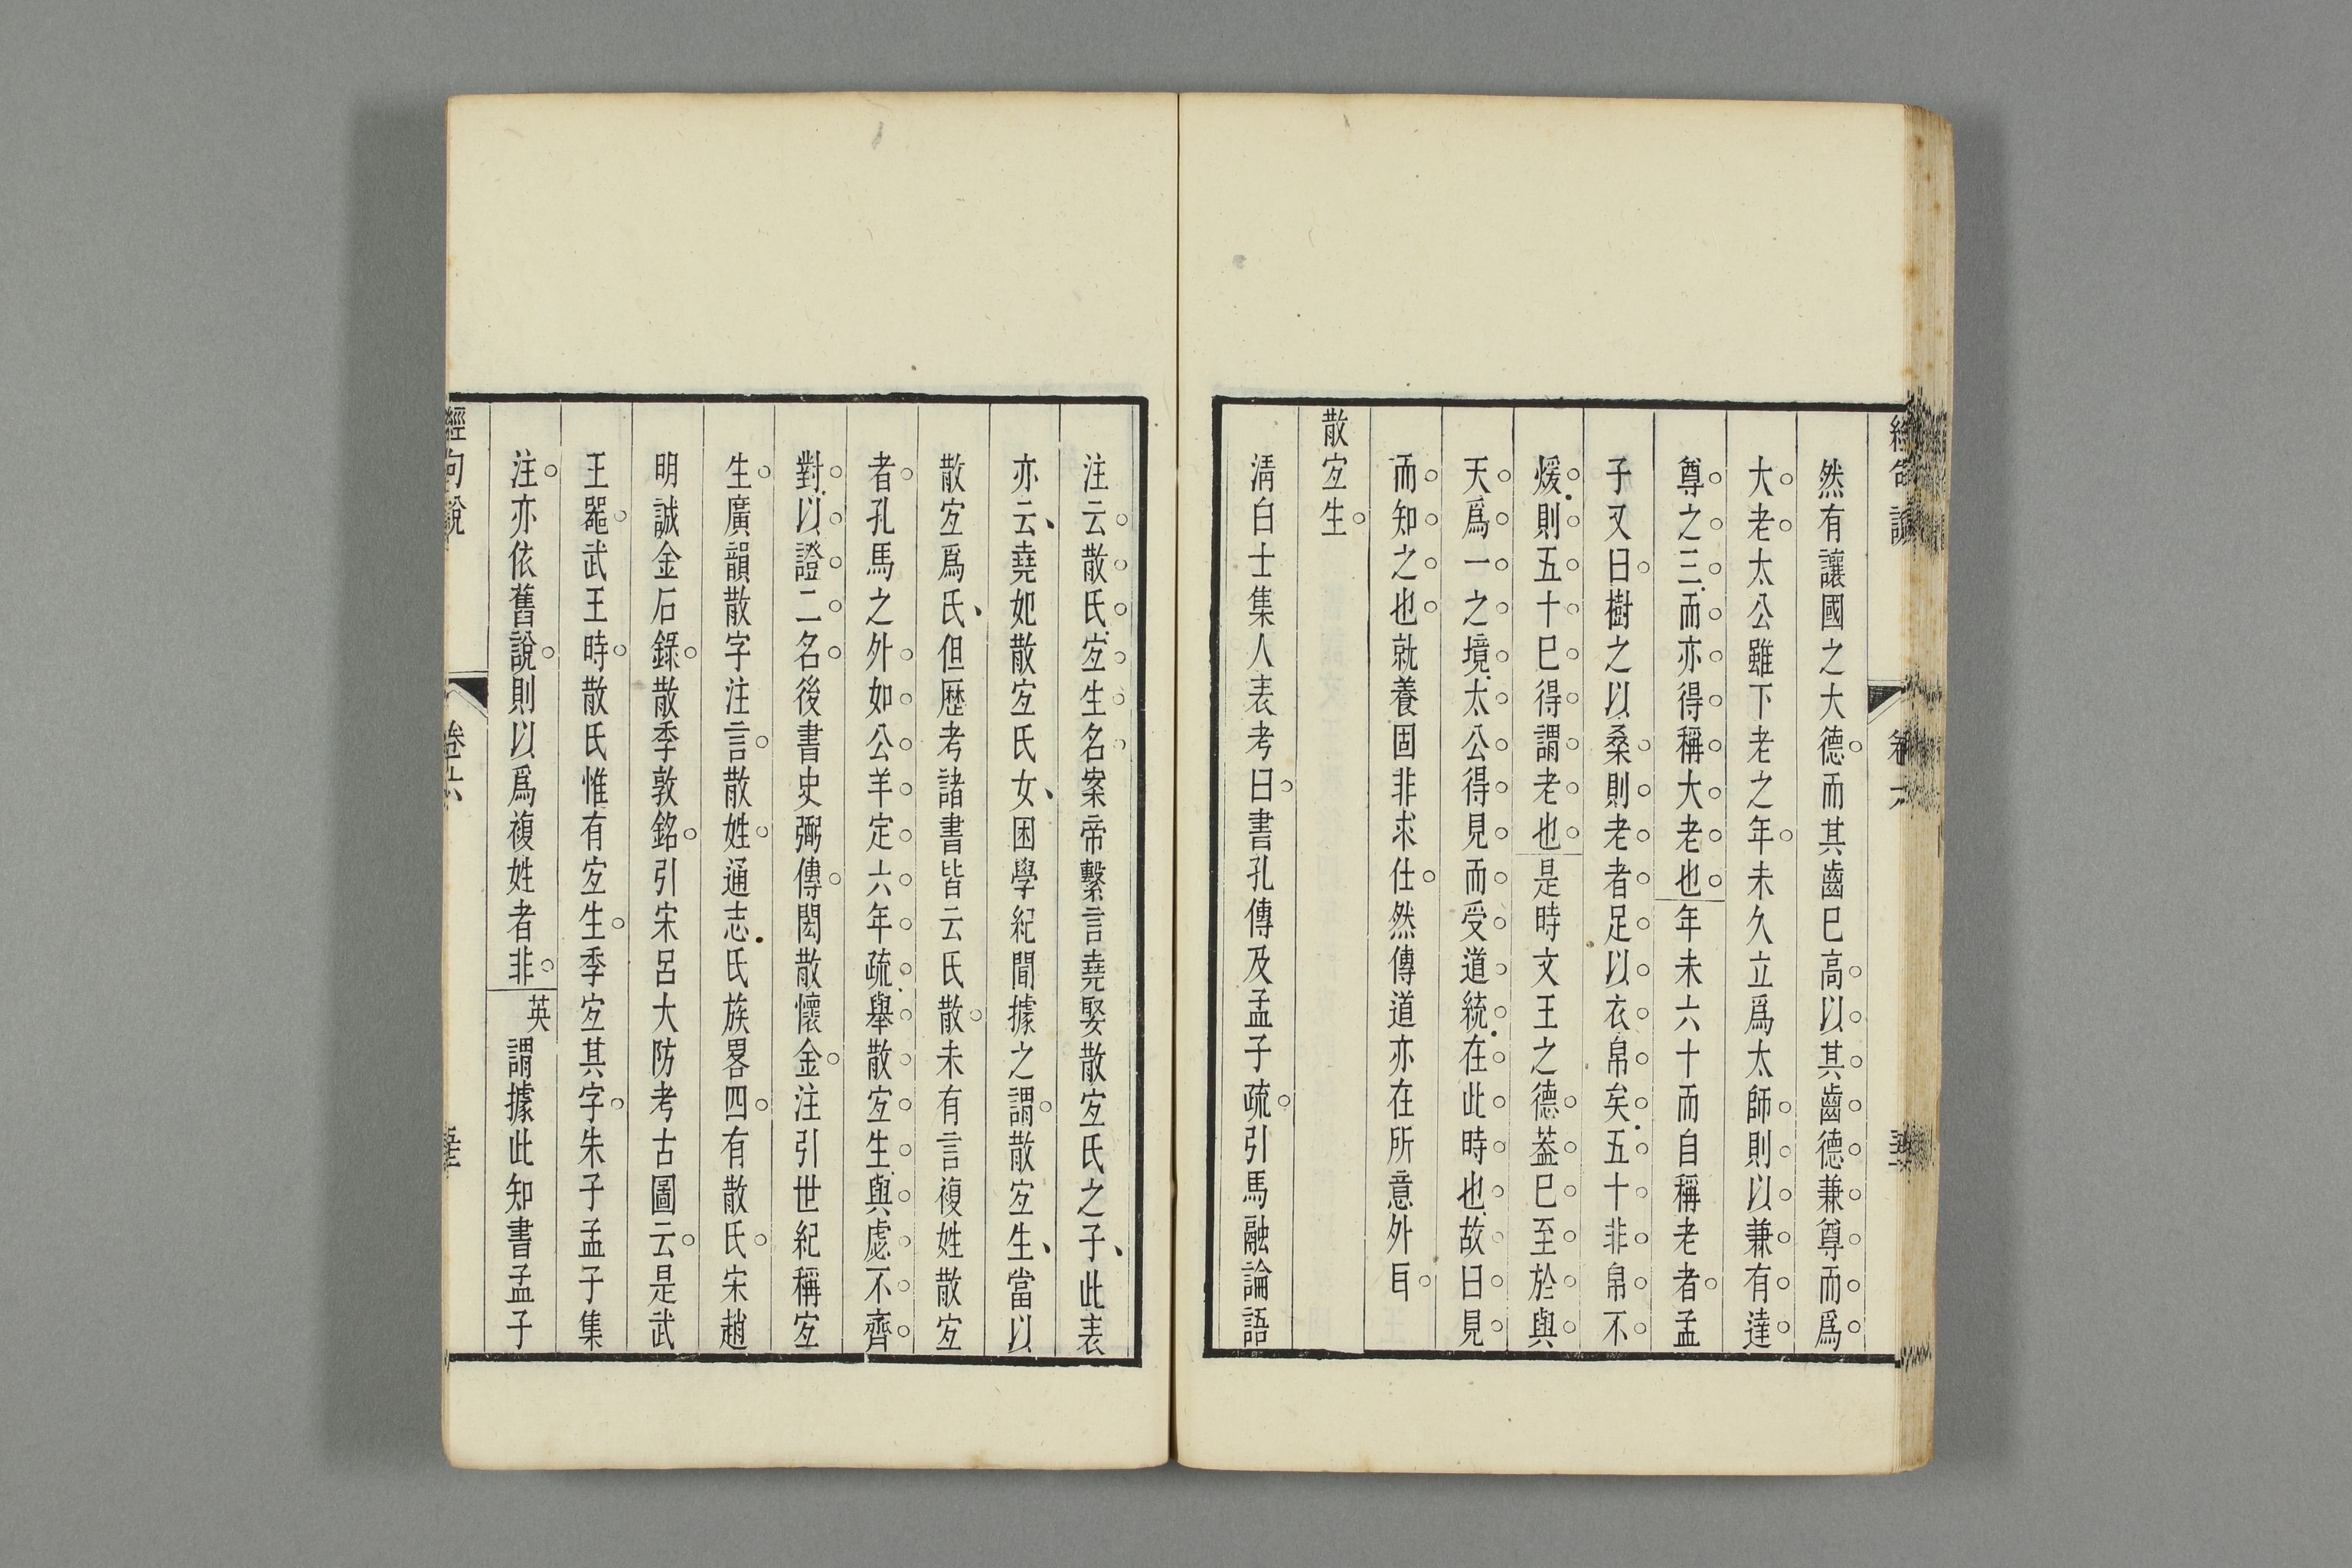 然有讓國之大德而其齒巳高以其齒德兼尊而爲
大老太公雖下老之年未久立爲太師則以兼有達
尊之三而亦得稱大老也年未六十而自稱老者孟
子又曰樹之以桑則老者足以衣帛矣五十非帛不
煖則五十巳得謂老也是時文王之德葢巳至於與
天爲一之境太公得見而受道統在此時也故曰見
而知之也就養固非求仕然傳道亦在所意外耳
散宐生
清白士集人表考曰書孔傳及孟子疏引馬融論語
注云散氏宐生名案帝繫言堯娶散宐氏之子此表
亦云堯妃散宐氏女困學紀聞據之謂散宐生當以
散宐爲氏但歷考諸書皆云氏散未有言複姓散宐
者孔馬之外如公羊定六年疏舉散宐生與虙不齊
對以證二名後書史弼傳閎散懷金注引世紀稱宐
生廣韻散字注言散姓通志氏族畧四有散氏宋趙
明誠金石錄散季敦銘引宋呂大防考古圖云是武
王噐武王時散氏惟有宐生季宐其字朱子孟子集
注亦依舊說則以爲複姓者非英謂據此知書孟子
經句說
卷六